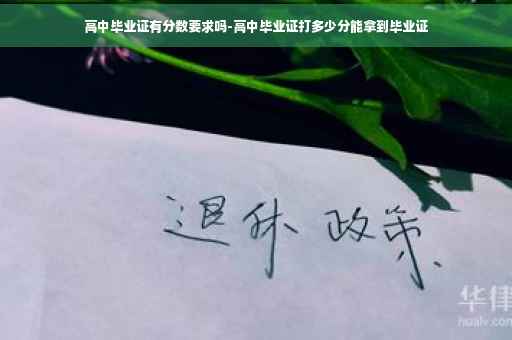 高中毕业证有分数要求吗-高中毕业证打多少分能拿到毕业证
退休 政策
华律
hualv.com